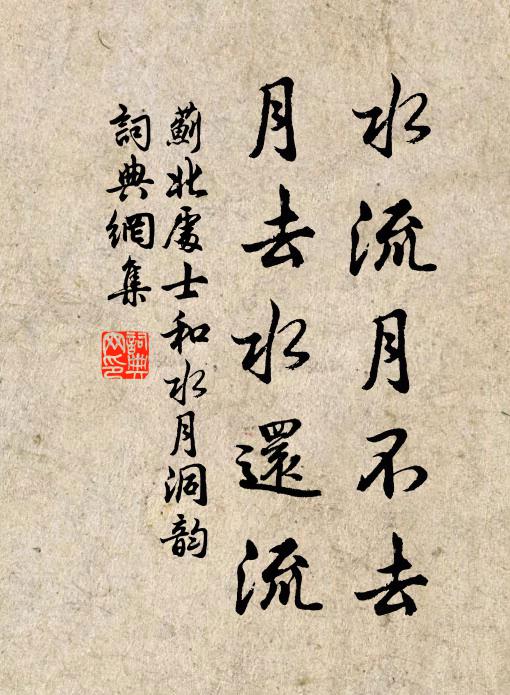 水流月不去
月去水還流
薊北處士和水月洞韵
詞典網集
詞典网印